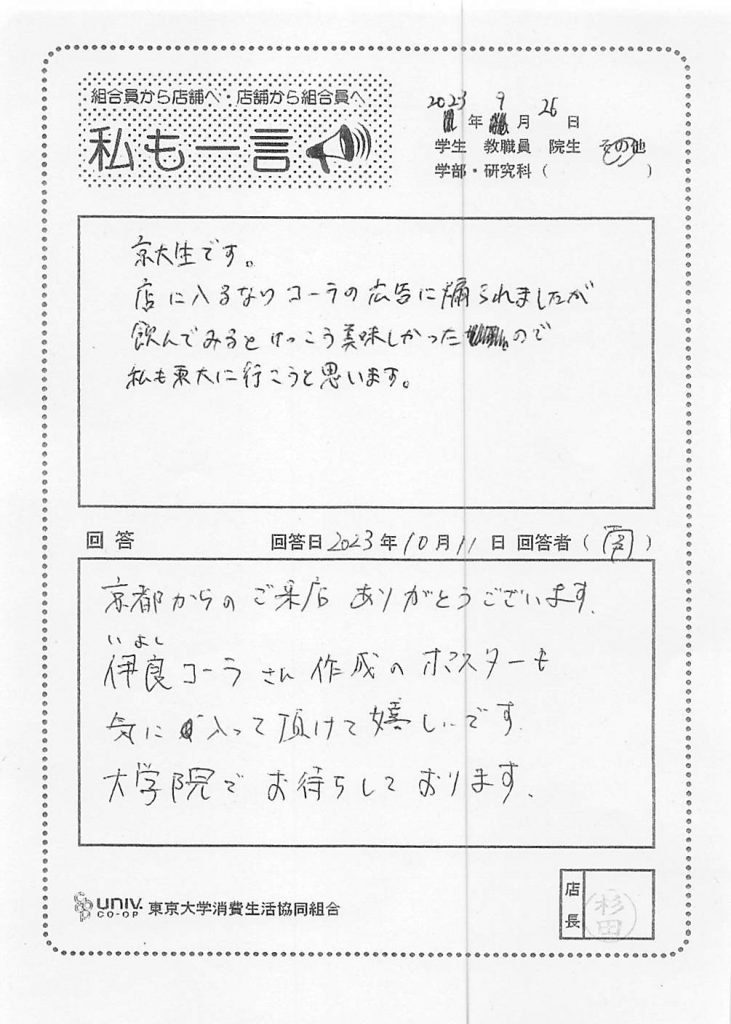 組合員から店舗へ・店舗から組合員へ
私も一言
2023年 9月 26日
学生 教職員 院生 その他
学部・研究科（ ）
京大生です。
店に入るなりコーラの広告に煽られましたが
飲んでみるとけっこう美味しかったので
私も東大に行こうと思います。
回答 回答日 2023年 10月 11日 回答者（ ）
京都からのご来店 ありがとうございます.
いよし
伊良コーラさん 作成の ポスターも
気に入って頂けて嬉しいです.
大学院で お待ちしております.
UNIV. CO-OP 東京大学消費生活協同組合
店長 杉田